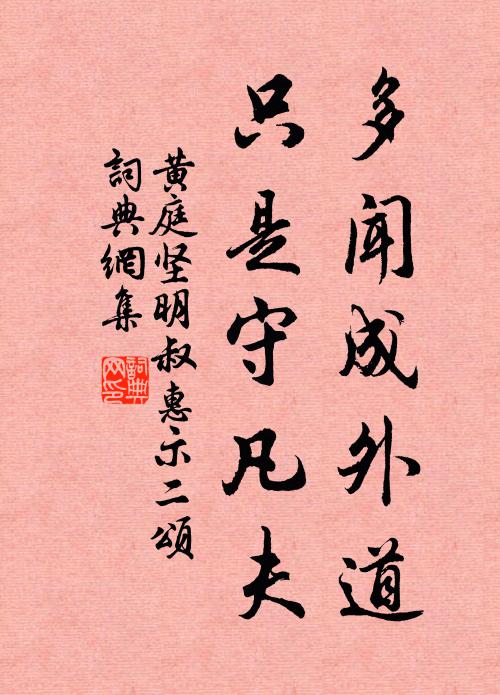 多闻成外道
只是守凡夫
黄庭坚明叔惠示二颂
詞典網集
詞典网印